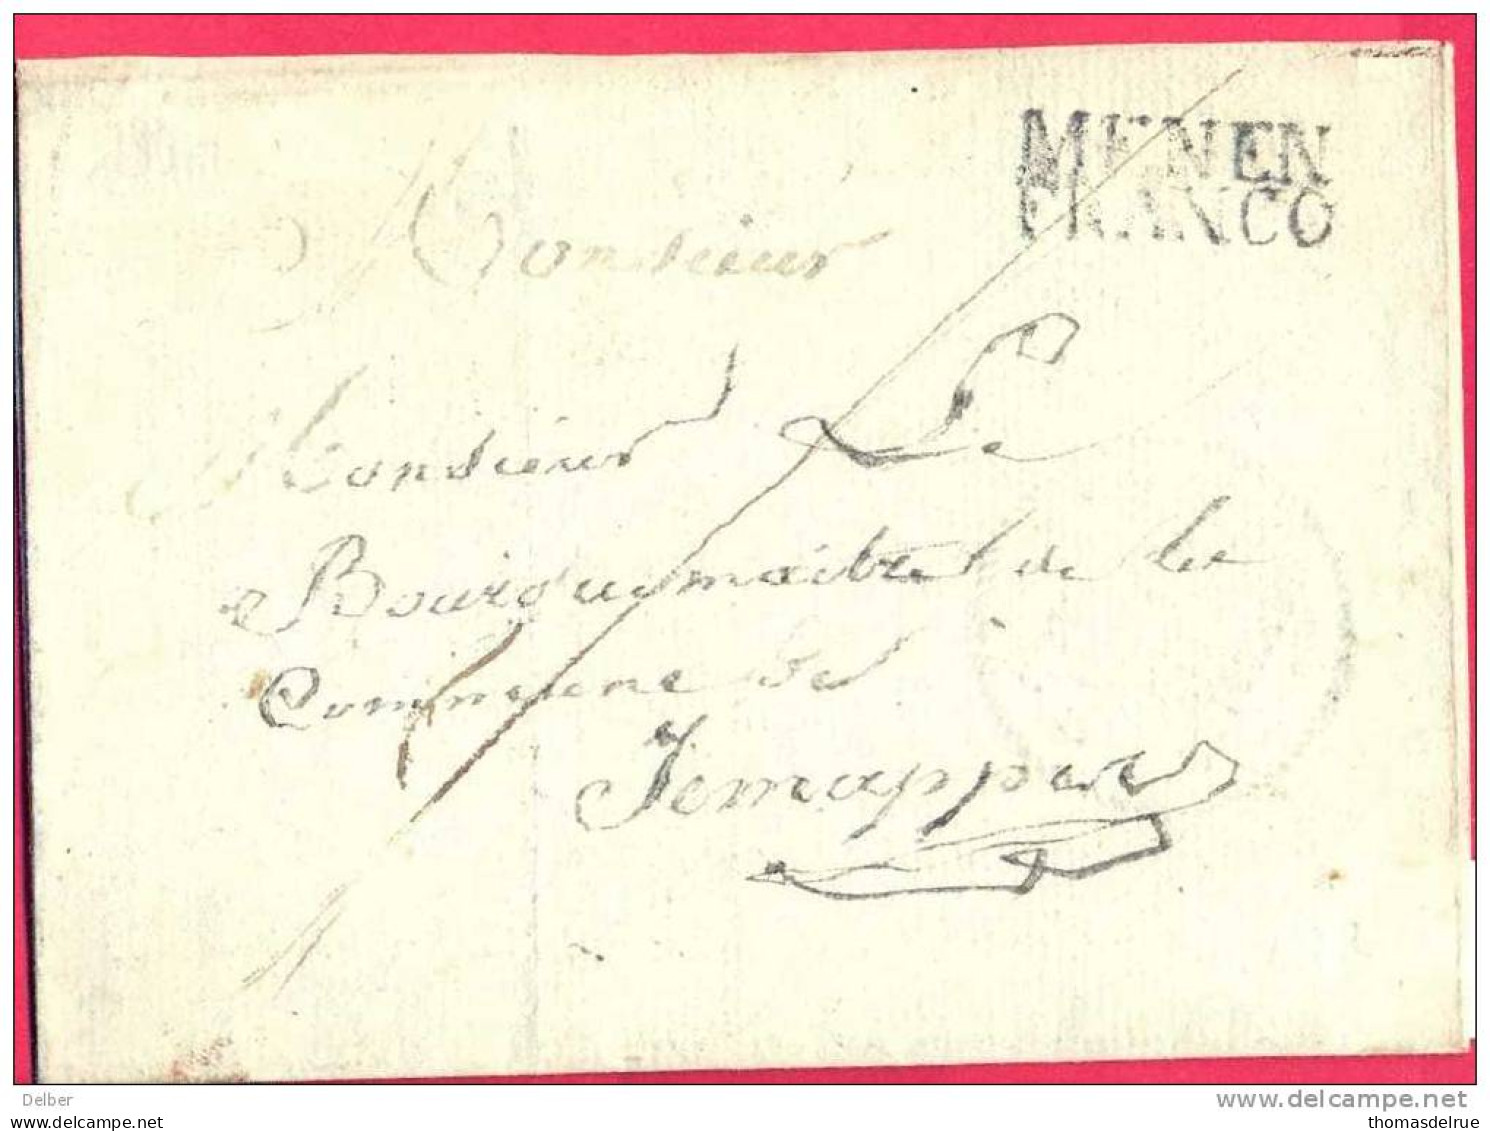 MENEN
FRANCO
Monsieur
Monsieur Le
Bourguemaitre de la
Commune de
Jemappes
Delber
www.delcampe.com
www.delcampe.net
thomasdelrue